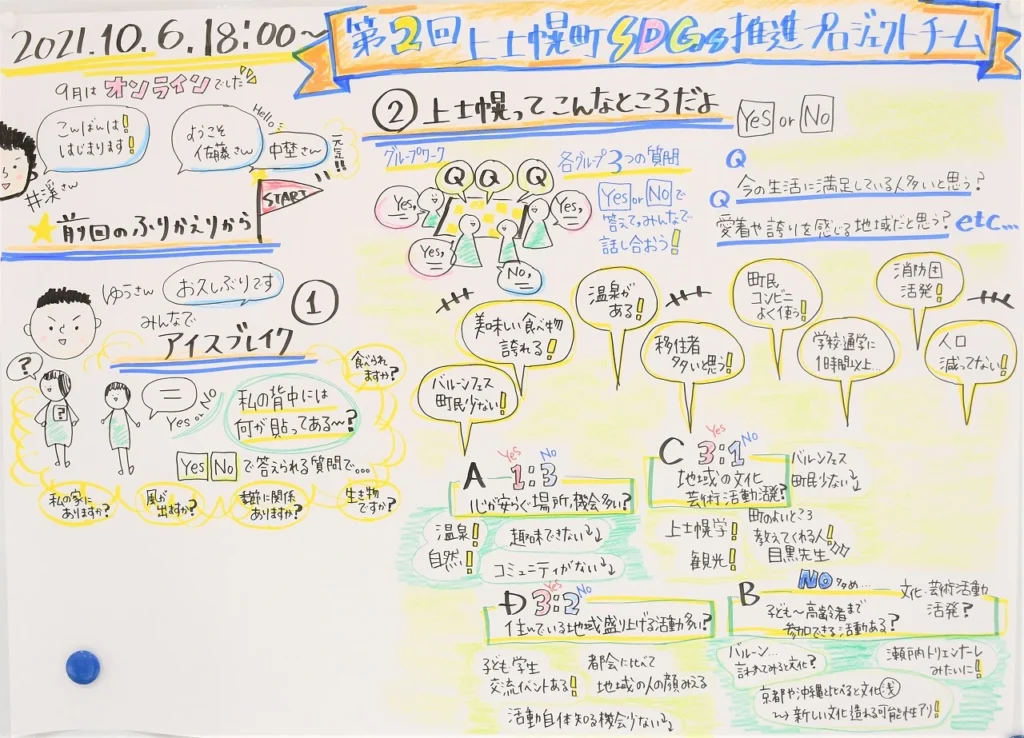 2021.10.6.18:00~
第2回上士幌町SDGs推進プロジェクトチーム
9月はオンラインでした
こんばんは!
はじまります!
井溪さん
ようこそ
佐藤さん
Hello
中埜さん
元気!!
START
★前回のふりかえりから
ゆうさん
お久しぶりです
①
みんなで
アイスブレイク
?
?
Yes or No
私の背中には
何が貼ってある~?
Yes No で答えられる質問で…
食べられ
ますか?
私の家に
ありますか?
風が
出ますか?
季節に関係
ありますか?
生き物
ですか?
②上士幌ってこんなところだよ
Yes or No
グループワーク
Q Q Q
Yes,
Yes,
Yes,
No,
各グループ3つの質問
Yes or No で
答えて、みんなで
話し合おう!
Q
今の生活に満足している人多いと思う?
Q
愛着や誇りを感じる地域だと思う? etc...
バルーンフェス
町民少ない!
美味しい食べ物
誇れる!
温泉が
ある!
移住者
多いと思う!
町民
コンビニ
よく使う!
学校通学に
1時間以上…
消防団
活発!
人口
減ってない!
A
Yes 1:3 No
心が安らぐ場所、機会多い?
温泉!
自然!
趣味できない↓
コミュニティがない↓
C
Yes 3:1 No
地域の文化
芸術活動活発?
バルーンフェス
町民少ない↓
上士幌学!
観光!
町のよいところ
教えてくれる人!
目黒先生
D
Yes 3:2 No
住んでいる地域盛り上げる活動多い?
子ども、学生
交流イベントある!
都会に比べて
地域の人の顔みえる
活動自体知る機会少ない↓
B
NO 多め…
子ども~高齢者まで
参加できる活動ある?
文化・芸術活動
活発?
バルーン…
言われてみると文化?
瀬戸内トリエンナーレ
みたいに!
京都や沖縄と比べると文化浅
→新しい文化造れる可能性アリ!